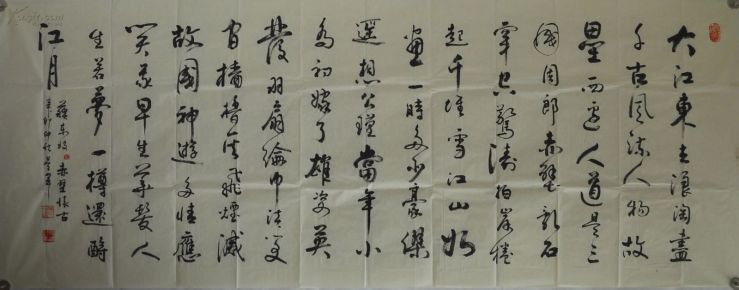 大江東去浪淘盡
千古風流人物故
壘西邊人道是三
國周郎赤壁亂石
穿空驚濤拍岸捲
起千堆雪江山如
畫一時多少豪傑
遙想公瑾當年小
喬初嫁了雄姿英
發羽扇綸巾談笑
間檣櫓灰飛煙滅
故國神遊多情應
笑我早生華髮人
生若夢一樽還酹
江月
蘇東坡赤壁懷古